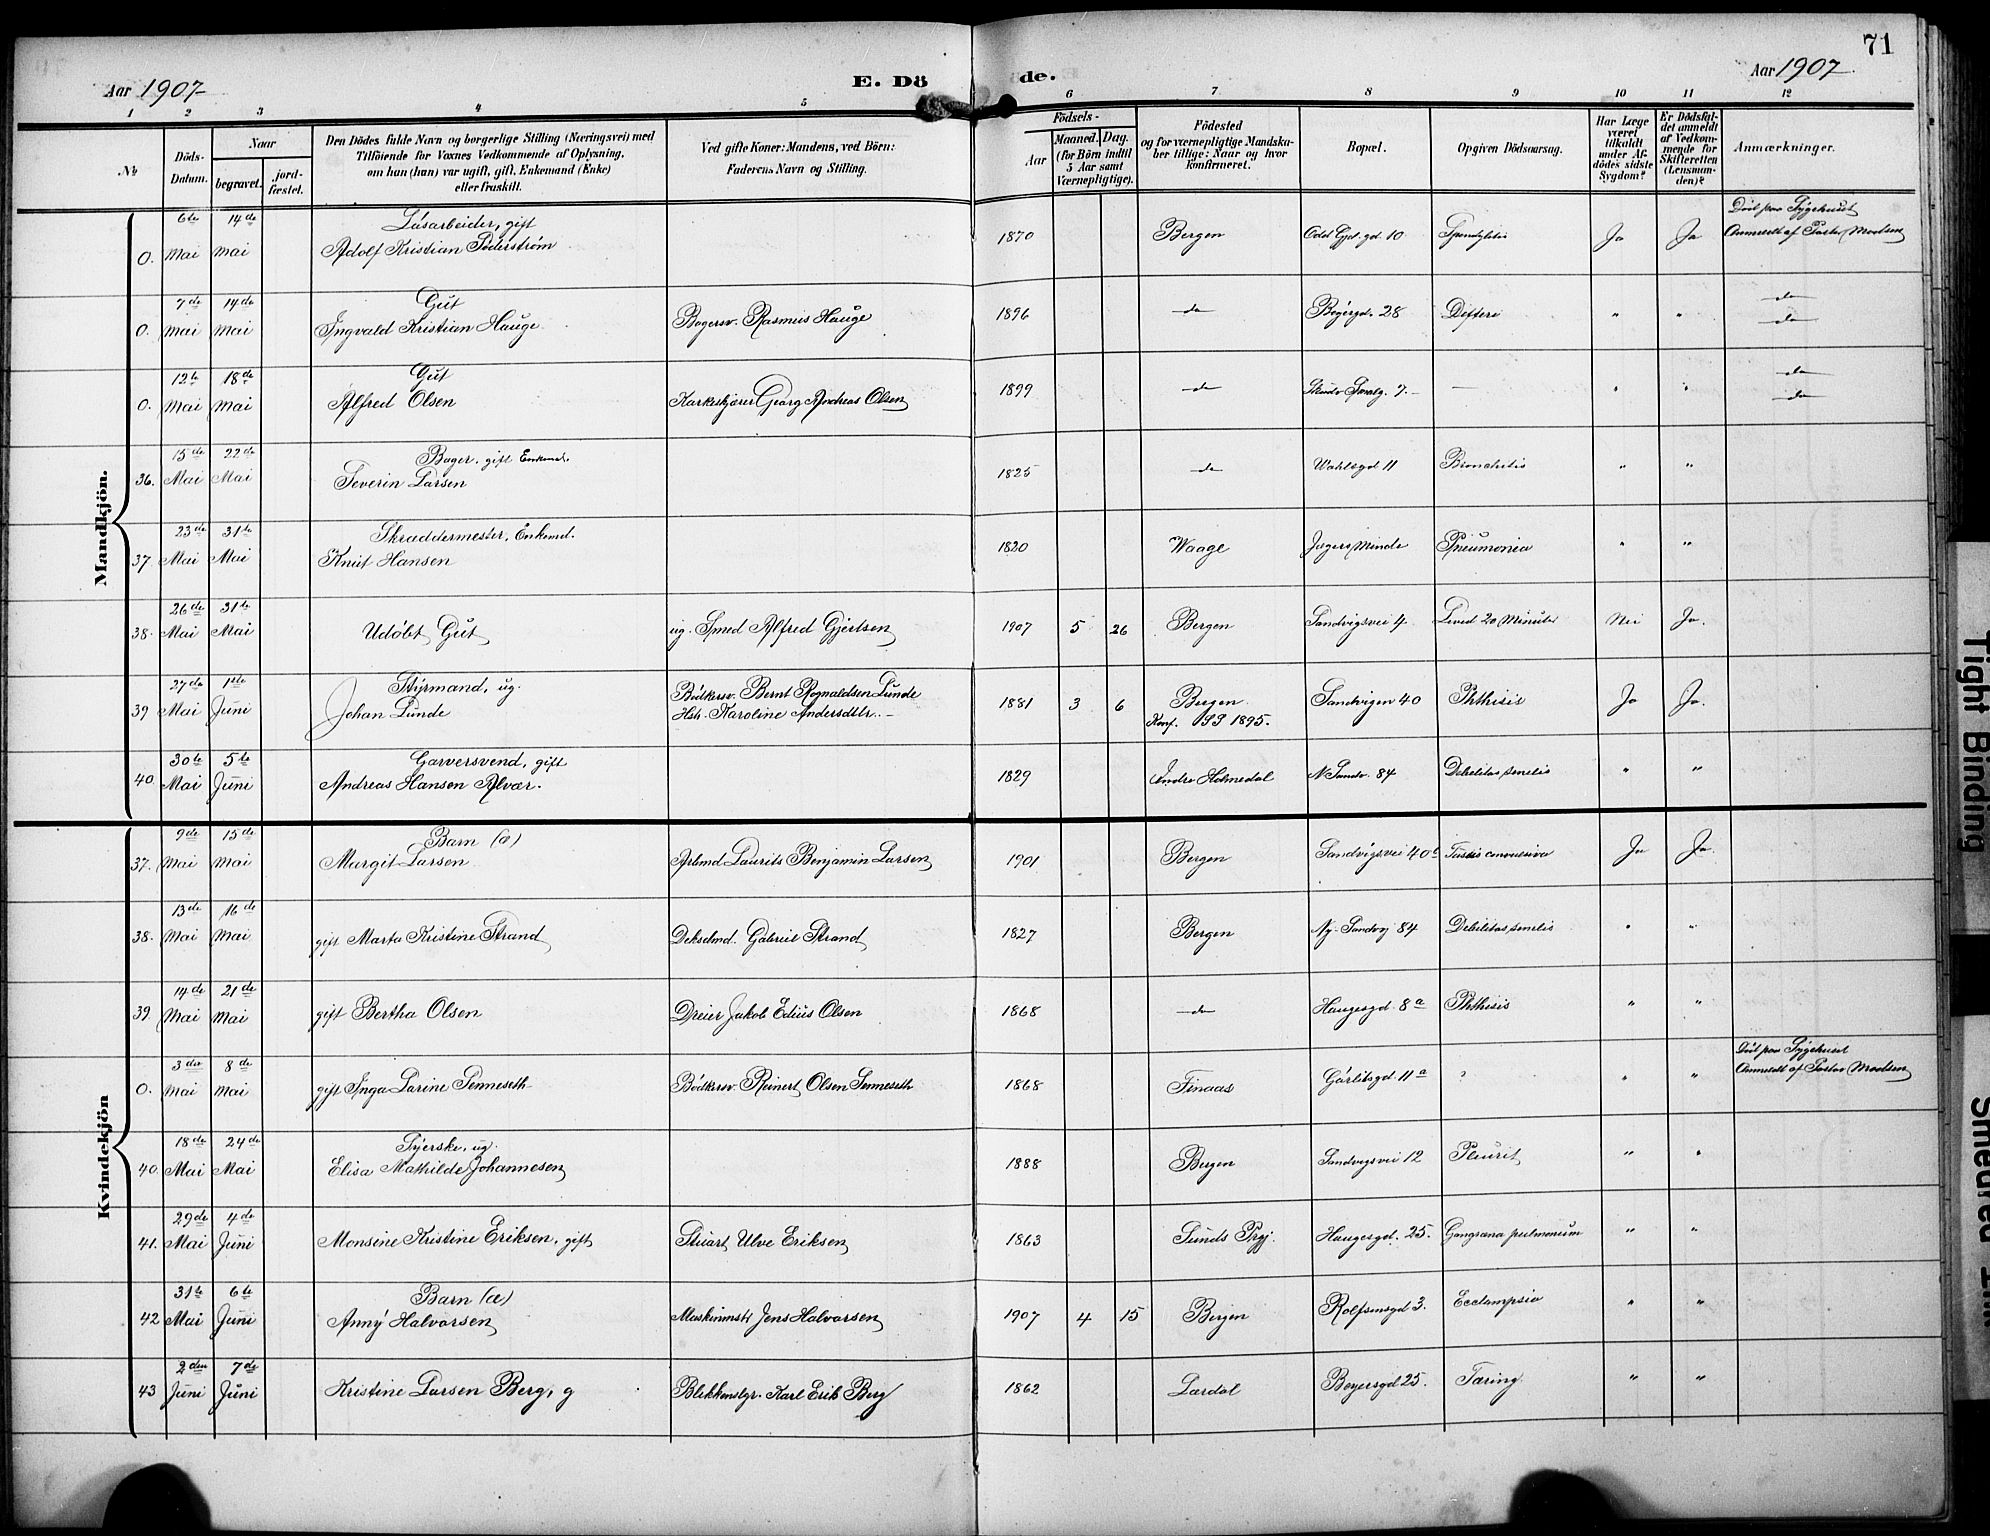 71
Aar 1907
E. Dö de.
Aar 1907
1 2 3 4 5 6 7 8 9 10 11 12
No
Döds-Datum.
Naar
begravet.
jord-fæstet.
Den Dödes fulde Navn og borgerlige Stilling (Næringsvei) med
Tilföiende for Voxnes Vedkommende af Oplysning,
om han (hun) var ugift, gift, Enkemand (Enke)
eller fraskilt.
Ved gifte Koner: Mandens, ved Börn:
Faderens Navn og Stilling.
Födsels-
Aar
Maaned. Dag.
(for Börn indtil
5 Aar samt
Værnepligtige).
Födested
og for værnepligtige Mandska-
ber tillige: Naar og hvor
konfirmeret.
Bopæl.
Opgiven Dödsaarsag.
Har Læge
været
tilkaldt
under Af-
dödes sidste
Sygdom?
Er Dödsfal-
det anmeldt
af Vedkom-
mende for
Skifteretten
(Lensman-
den)?
Anmærkninger.
Mandkjön.
6te 14de Løsarbeider, gift Död paa Sygehuset
0. Mai Mai Adolf Kristian Söderström 1870 Bergen 10 Ja Ja Anmeldt af Pastor Madsen
7de 14de Gut do
0. Mai Mai Ingvald Kristian Hauge Bagersv. Rasmus Hauge 1896 do Bøgergd. 28 Difteri " " do
12te 18de Gut do
0. Mai Mai Alfred Olsen Korkeskjærer Georg Andreas Olsen 1899 do 7. — " " do
15de 22de Bager, gift Enkemd.
36. Mai Mai Severin Larsen 1825 do Wahlsgd 11 Bronchitis " "
23de 31te Skræddermester, Enkemd.
37. Mai Mai Knut Hansen 1820 Waage Jægers Minde Pneumonia " "
26de 31te
38. Mai Mai Udøbt Gut ug. Smed Alfred Gjertsen 1907 5 26 Bergen Sandvigsvei 4 Leved 20 Minuter Nei Ja.
27de 1ste Styrmand, ug. Bødkersv. Bernt Rognaldsen Lunde
39 Mai Juni Johan Lunde Hstr. Karoline Andersdtr. 1881 3 6 Bergen Sandvigen 40 Phthisis Ja Ja.
Konf. 1895.
30te 5te Garversvend, gift
40. Mai Juni Andreas Hansen Alvær. 1829 Indre Holmedal N Sandv. 84 Debilitas senilis " "
Kvindekjön
9de 15de Barn (æ)
37. Mai Mai Margit Larsen Arbmd Laurits Benjamin Larsen 1901 Bergen Sandvigsvei 40b Tussis convulsiva Ja Ja.
13de 16de
38. Mai Mai gift Marta Kristine Strand Deksdmd. Gabriel Strand 1827 Bergen Ny-Sandvg 84 Debilitas senilis " "
14de 21de
39. Mai Mai gift Bertha Olsen Dreier Jakob Edius Olsen 1868 do Haugesgd 8a Phthisis " "
3die 8de Död paa Sygehuset
0. Mai Mai gift Inga Larine Senneseth Bødkersv. Reinert Olsen Senneseth 1868 Finaas 11a ? " " Anmeldt af Pastor Madsen
18de 24de Syerske, ug.
40. Mai Mai Elisa Mathilde Johannesen 1888 Bergen Sandvigsvei 12 Pleurit " "
29de 4de
41. Mai Juni Monsine Kristine Eriksen, gift Stuart Ulve Eriksen 1863 Sunds Prgj. Haugesgd. 25. Gangræna pulmonum " "
31te 6te Barn (æ)
42 Mai Juni Anny Halvorsen Maskinmstr Jens Halvorsen 1907 4 15 Bergen Rolfsensgd 3. Ecclampsia " "
2den 7de
43 Juni Juni Kristine Larsen Berg, g Blikkenslgr. Karl Erik Berg 1862 Lærdal Bøyersgd 25. Tæring " "
Tight Binding
Smeared Ink